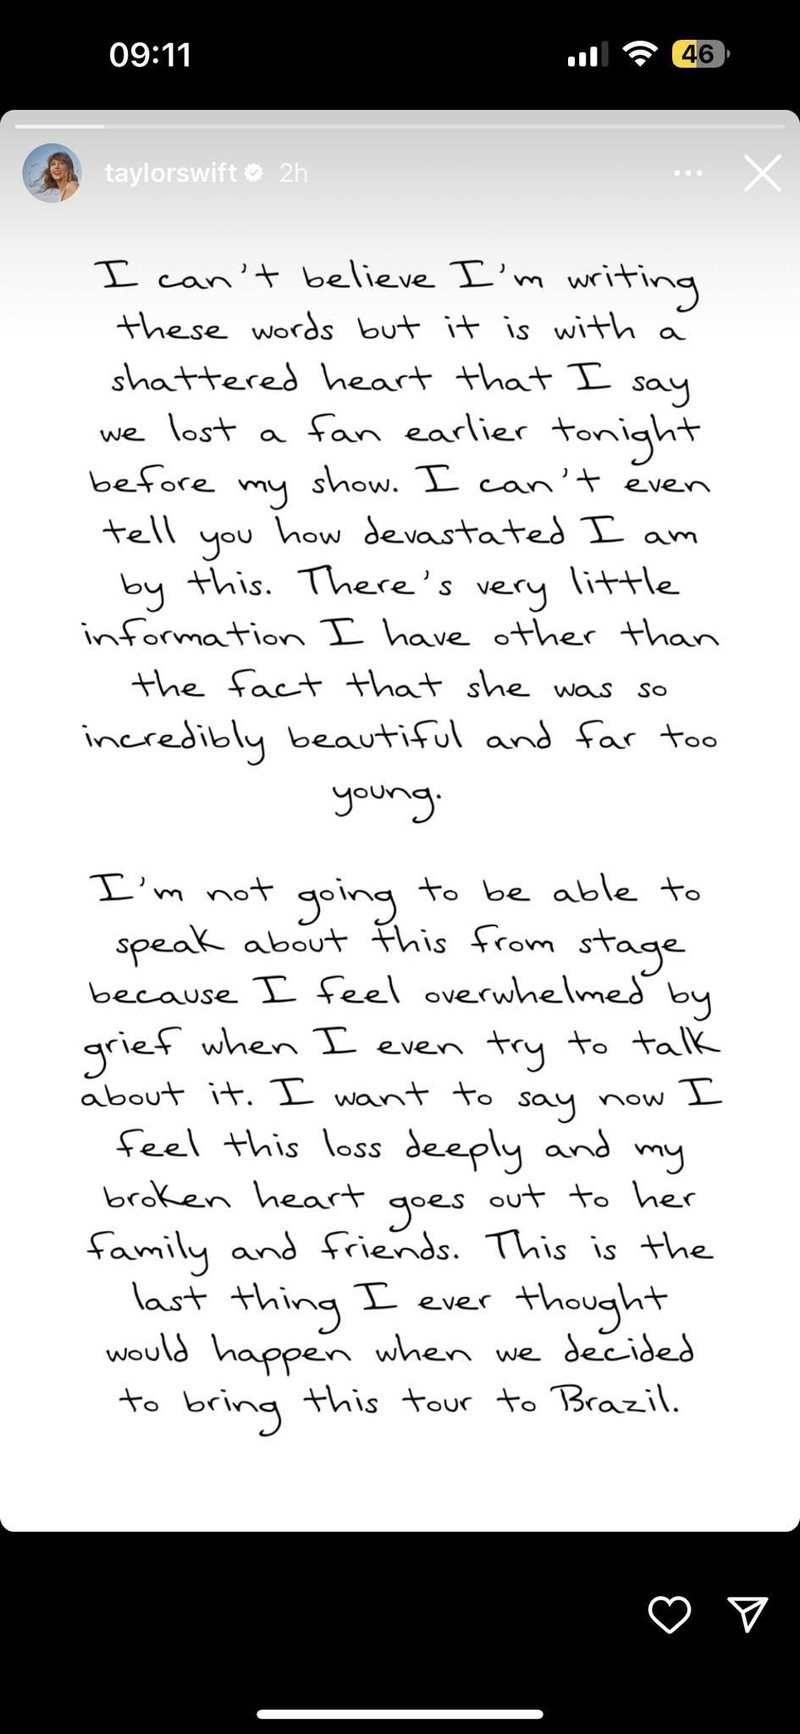 09:11
46
taylorswift 2h
I can't believe I'm writing
these words but it is with a
shattered heart that I say
we lost a fan earlier tonight
before my show. I can't even
tell you how devastated I am
by this. There's very little
information I have other than
the fact that she was so
incredibly beautiful and far too
young.
I'm not going to be able to
speak about this from stage
because I feel overwhelmed by
grief when I even try to talk
about it. I want to say now I
feel this loss deeply and my
broken heart goes out to her
family and friends. This is the
last thing I ever thought
would happen when we decided
to bring this tour to Brazil.